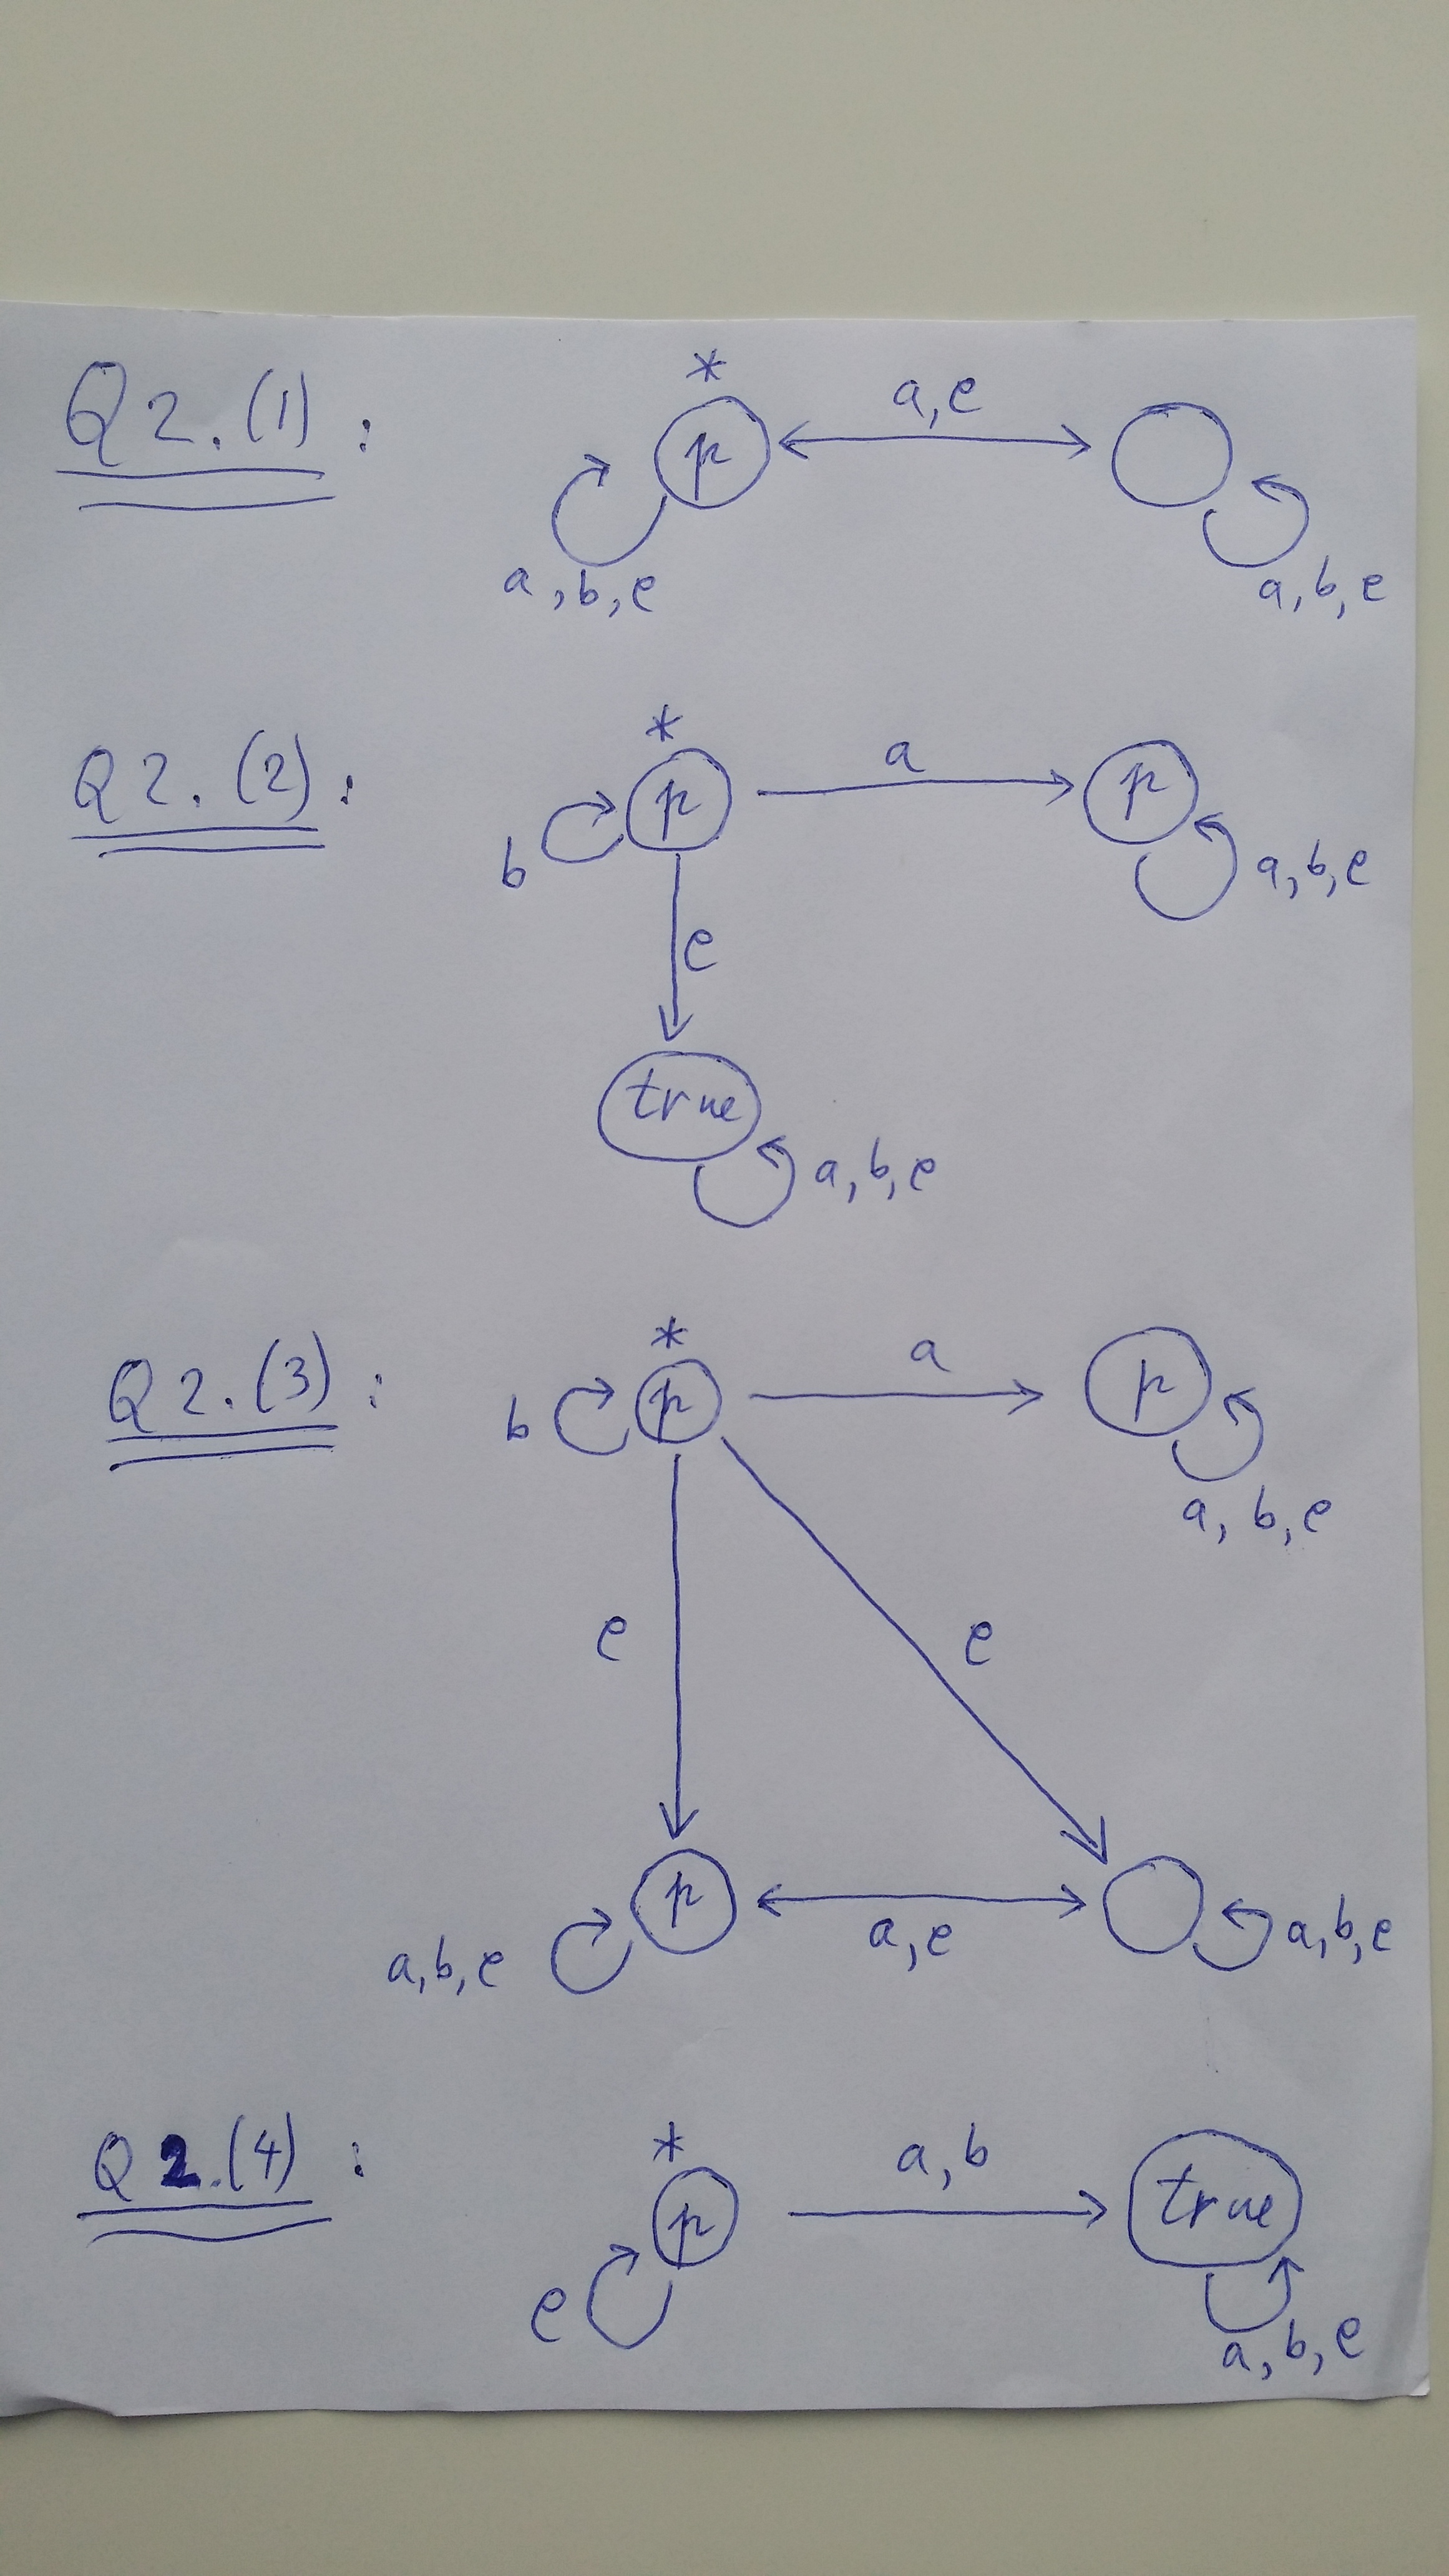 Q2.(1):
*
p
a,e
a,b,e
a,b,e
Q2.(2):
*
p
a
p
b
a,b,e
e
true
a,b,e
Q2.(3):
*
b
p
a
p
a,b,e
e
e
p
a,e
a,b,e
a,b,e
Q2.(4):
*
p
a,b
true
e
a,b,e